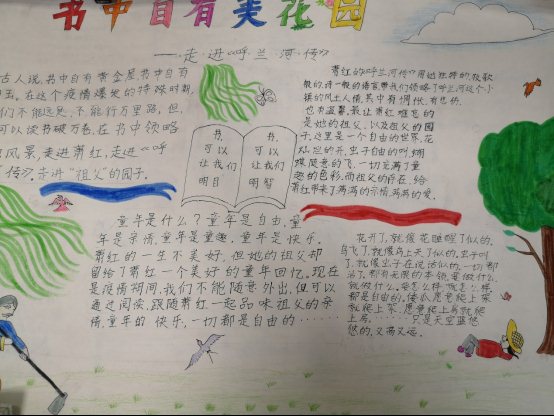 书中自有美花园
——走进“呼兰河传”
古人说，书中自有黄金屋书中自有
玉。在这个疫情爆发的特殊时期，
们不能远足，不能行万里路，但，
可以读书破万卷，在书中领略
风景，走进萧红，走进“呼
传”，走进“祖父”的园子。
书，
可以
让我们
明目
书，
可以
让我们
明智
萧红的《呼兰河传》用她独特的，牧歌
般的，诗一般的语言带我们领略了呼兰河这个小
镇的风土人情，其中有惆怅，有悲伤，
也有温馨，最让萧红难忘的
是她的祖父，以及祖父的园
子，这里是一个自由的世界，花
儿恣意的开，虫子自由的叫，蝴
蝶随意的飞，一切充满了童
趣的色彩，而祖父的存在，给
萧红带来了满满的亲情，满满的爱。
童年是什么？童年是自由，童
年是亲情，童年是童趣，童年是快乐。
萧红的一生不美好，但她的祖父却
留给了萧红一个美好的童年回忆。现在
是疫情期间，我们不能随意外出，但可以
通过阅读，跟随萧红一起品味祖父的亲
情，童年的快乐，一切都是自由的……
花开了，就像花睡醒了似的。
鸟飞了，就像鸟上天了似的。虫子叫
了，就像虫子在说话似的。一切都
活了，都有无限的本领，要做什么，
就做什么。要怎么样，就怎么样，
都是自由的，倭瓜愿意爬上架
就爬上架，愿意爬上房就爬
上房。……只是天空蓝悠
悠的，又高又远。